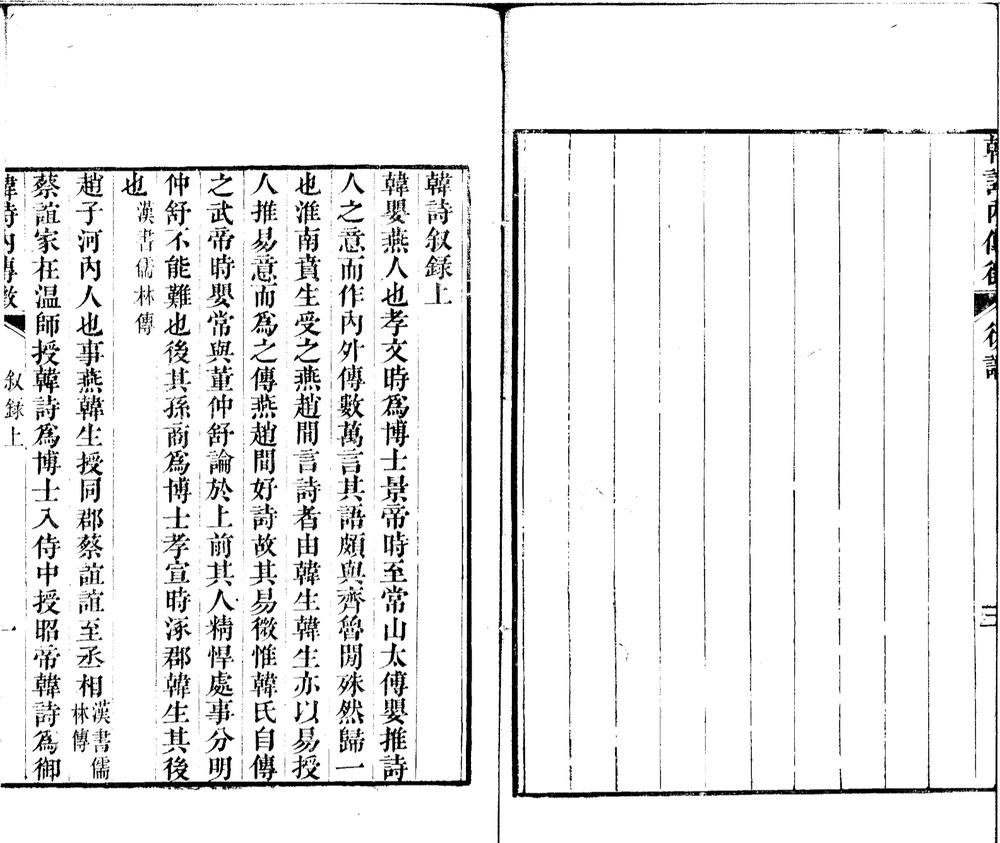 後
韓詩叙録上
韓嬰燕人也孝文時爲博士景帝時至常山太傅嬰推詩
人之意而作内外傳數萬言其語頗與齊魯閒殊然歸一
也淮南賁生受之燕趙間言詩者由韓生韓生亦以易授
人推易意而爲之傳燕趙間好詩故其易微惟韓氏自傳
之武帝時嬰常與董仲舒論於上前其人精悍處事分明
仲舒不能難也後其孫商爲博士孝宣時涿郡韓生其後
也漢書儒林傳
趙子河内人也事燕韓生授同郡蔡誼誼至丞相漢書儒林傳
蔡誼家在温師授韓詩爲博士入侍中授昭帝韓詩爲御
韓詩内傳徵 叙録上 一